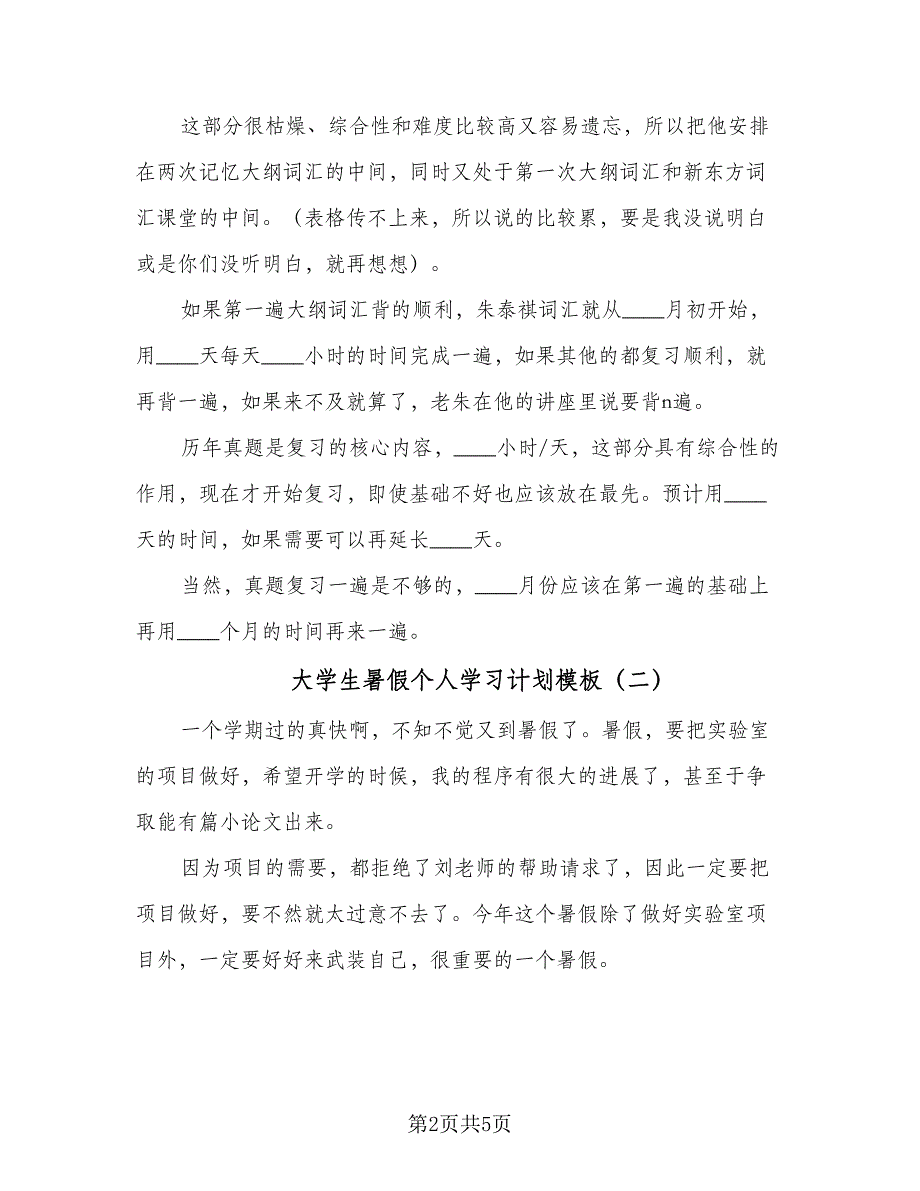 这部分很枯燥、综合性和难度比较高又容易遗忘，所以把他安排
在两次记忆大纲词汇的中间，同时又处于第一次大纲词汇和新东方词
汇课堂的中间。（表格传不上来，所以说的比较累，要是我没说明白
或是你们没听明白，就再想想）。
如果第一遍大纲词汇背的顺利，朱泰祺词汇就从____月初开始，
用____天每天____小时的时间完成一遍，如果其他的都复习顺利，就
再背一遍，如果来不及就算了，老朱在他的讲座里说要背n遍。
历年真题是复习的核心内容，____小时/天，这部分具有综合性的
作用，现在才开始复习，即使基础不好也应该放在最先。预计用____
天的时间，如果需要可以再延长____天。
当然，真题复习一遍是不够的，____月份应该在第一遍的基础上
再用____个月的时间再来一遍。
大学生暑假个人学习计划模板（二）
一个学期过的真快啊，不知不觉又到暑假了。暑假，要把实验室
的项目做好，希望开学的时候，我的程序有很大的进展了，甚至于争
取能有篇小论文出来。
因为项目的需要，都拒绝了刘老师的帮助请求了，因此一定要把
项目做好，要不然就太过意不去了。今年这个暑假除了做好实验室项
目外，一定要好好来武装自己，很重要的一个暑假。
第2页共5页